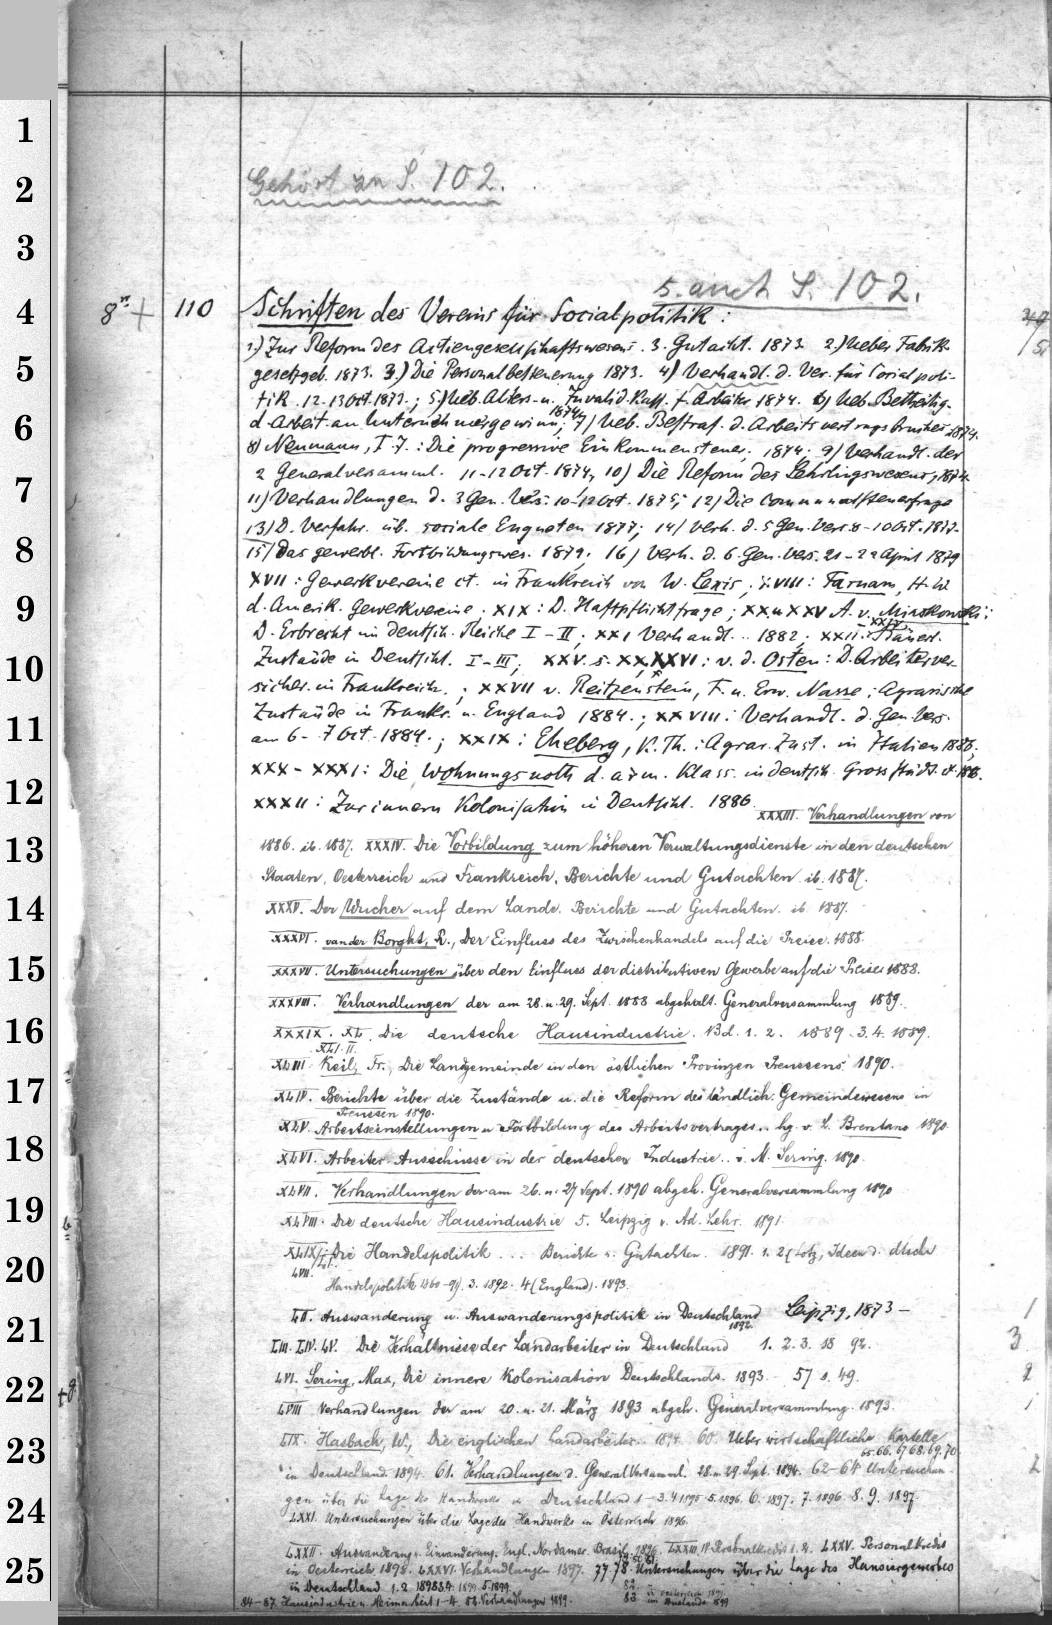 Gehört zu S. 102.
s. auch S. 102.
8° + 110 Schriften des Vereins für Socialpolitik:
1.) Zur Reform des Actiengesellschaftswesens. 3. Gutacht. 1873. 2.) Ueber Fabrik-
gesetzgeb. 1873. 3.) Die Personalbesteuerung 1873. 4) Verhandl. d. Ver. für Socialpoli-
tik. 12-13 Oct. 1873.; 5) Ueb. Alters- u. Invalid. Kass. f. Arbeiter 1874. 6) Ueb. Betheilig.
d. Arbeit. an Unternehmergewinn, 1874, 7) Ueb. Bestraf. d. Arbeitsvertragsbruches 1874.
8) Neumann, F. J.: Die progressive Einkommensteuer. 1874; 9) Verhandl. der
2 Generalversamml. 11-12 Oct. 1874, 10) Die Reform des Lehrlingswesens, 1874.
11) Verhandlungen d. 3 Gen. Vers. 10-12 Oct. 1875; 12) Die Communalsteuerfrage
13) D. Verfahr. üb. sociale Enqueten 1877; 14) Verh. d. 5 Gen. Vers. 8-10 Oct. 1877.
15) Das gewerbl. Fortbildungswes. 1879. 16) Verh. d. 6. Gen. Vers. 21-22 April 1879
XVII: Gewerkvereine ct. in Frankreich von W. Lexis; XVIII: Farnam, H. W.
d. Amerik. Gewerkvereine; XIX: D. Haftpflichtfrage; XX u XXV A. v. Miaskowski:
D. Erbrecht im deutsch. Reiche I-II; XXI Verhandl. 1882; XXII-XXIV: Bäuerl.
Zustände in Deutschl. I-III; XXV s. XX, XXVI: v. d. Osten: D. Arbeiterver-
sicher. in Frankreich.; XXVII v. Reitzenstein, F. u. Erw. Nasse: Agrarische
Zustände in Frankr. u. England 1884.; XXVIII: Verhandl. d. Gen. Vers.
am 6-7 Oct. 1884.; XXIX: Eheberg, K. Th.: Agrar. Zust. in Italien 1886;
XXX-XXXI: Die Wohnungsnoth d. ärm. Klass. in deutsch. Grossstädt. 1886.
XXXII: Zur innern Kolonisation in Deutschl. 1886. XXXIII. Verhandlungen von
1886. ib. 1887. XXXIV. Die Vorbildung zum höheren Verwaltungsdienste in den deutschen
Staaten, Oesterreich und Frankreich, Berichte und Gutachten. ib. 1887.
XXXV. Der Wucher auf dem Lande. Berichte und Gutachten. ib. 1887.
XXXVI. van der Borght, R., Der Einfluss des Zwischenhandels auf die Preise. 1888.
XXXVII. Untersuchungen über den Einfluss der distributiven Gewerbe auf die Preise 1888.
XXXVIII. Verhandlungen der am 28. u. 29. Sept. 1888 abgehalt. Generalversammlung 1889.
XXXIX. XL. Die deutsche Hausindustrie. Bd. 1. 2. 1889. 3. 4. 1889.
XLI. II.
XLIII Keil, Fr., Die Landgemeinde in den östlichen Provinzen Preussens 1890.
XLIV. Berichte über die Zustände u. die Reform des ländlich. Gemeindewesens in
Preussen 1890.
XLV. Arbeitseinstellungen u. Fortbildung des Arbeitsvertrages.. hg. v. L. Brentano 1890.
XLVI. Arbeiter-Ausschüsse in der deutschen Industrie.. v. M. Sering. 1890.
XLVII. Verhandlungen der am 26. u. 27 Sept. 1890 abgeh. Generalversammlung 1890
XLVIII. Die deutsche Hausindustrie 5. Leipzig v. Ad. Lehr. 1891.
XLIX/LI. Die Handelspolitik ... Berichte u. Gutachten. 1891. 1. 2 (Lotz, Ideen d. dtschn
LVII. Handelspolitik 1860-91). 3. 1892. 4 (England). 1893.
LII. Auswanderung u. Auswanderungspolitik in Deutschland 1892. Leipzig, 1873 -
LIII. LIV. LV. Die Verhältnisse der Landarbeiter in Deutschland 1. 2. 3. 1892.
LVI. Sering, Max, Die innere Kolonisation Deutschlands. 1893. 57 s. 49.
LVIII Verhandlungen der am 20. u. 21. März 1893 abgeh. Generalversammlung. 1893.
LIX. Hasbach, W., Die englischen Landarbeiter. 1894. 60. Ueber wirtschaftliche Kartelle
in Deutschland. 1894. 61. Verhandlungen d. GeneralVersamml. 28. u. 29. Sept. 1894. 62-64 65. 66. 67 68. 69. 70 Untersuchun-
gen über die Lage des Handwerks in Deutschland 1-3. 4 1895. 5. 1896. 6. 1897. 7. 1896. 8. 9. 1897.
LXXI. Untersuchungen über die Lage des Handwerks in Österreich 1896.
LXXII. Auswanderung u. Einwanderung. Engl. Nordamer. Brasil. 1896. LXXIII. IV. Personalkredit 1. 2. LXXV. Personalkredit
in Oesterreich, 1898. LXXVI. Verhandlungen. 1897. 77. 78. Untersuchungen über die Lage des Hausiergewerbes
in Deutschland 1. 2 1898 3.4. 1899. 5. 1899. 82. in Oesterreich 1899.
84-87. Hausindustrie u. Heimarbeit 1-4. 88. Verhandlungen 1899. 83 im Auslande 1899